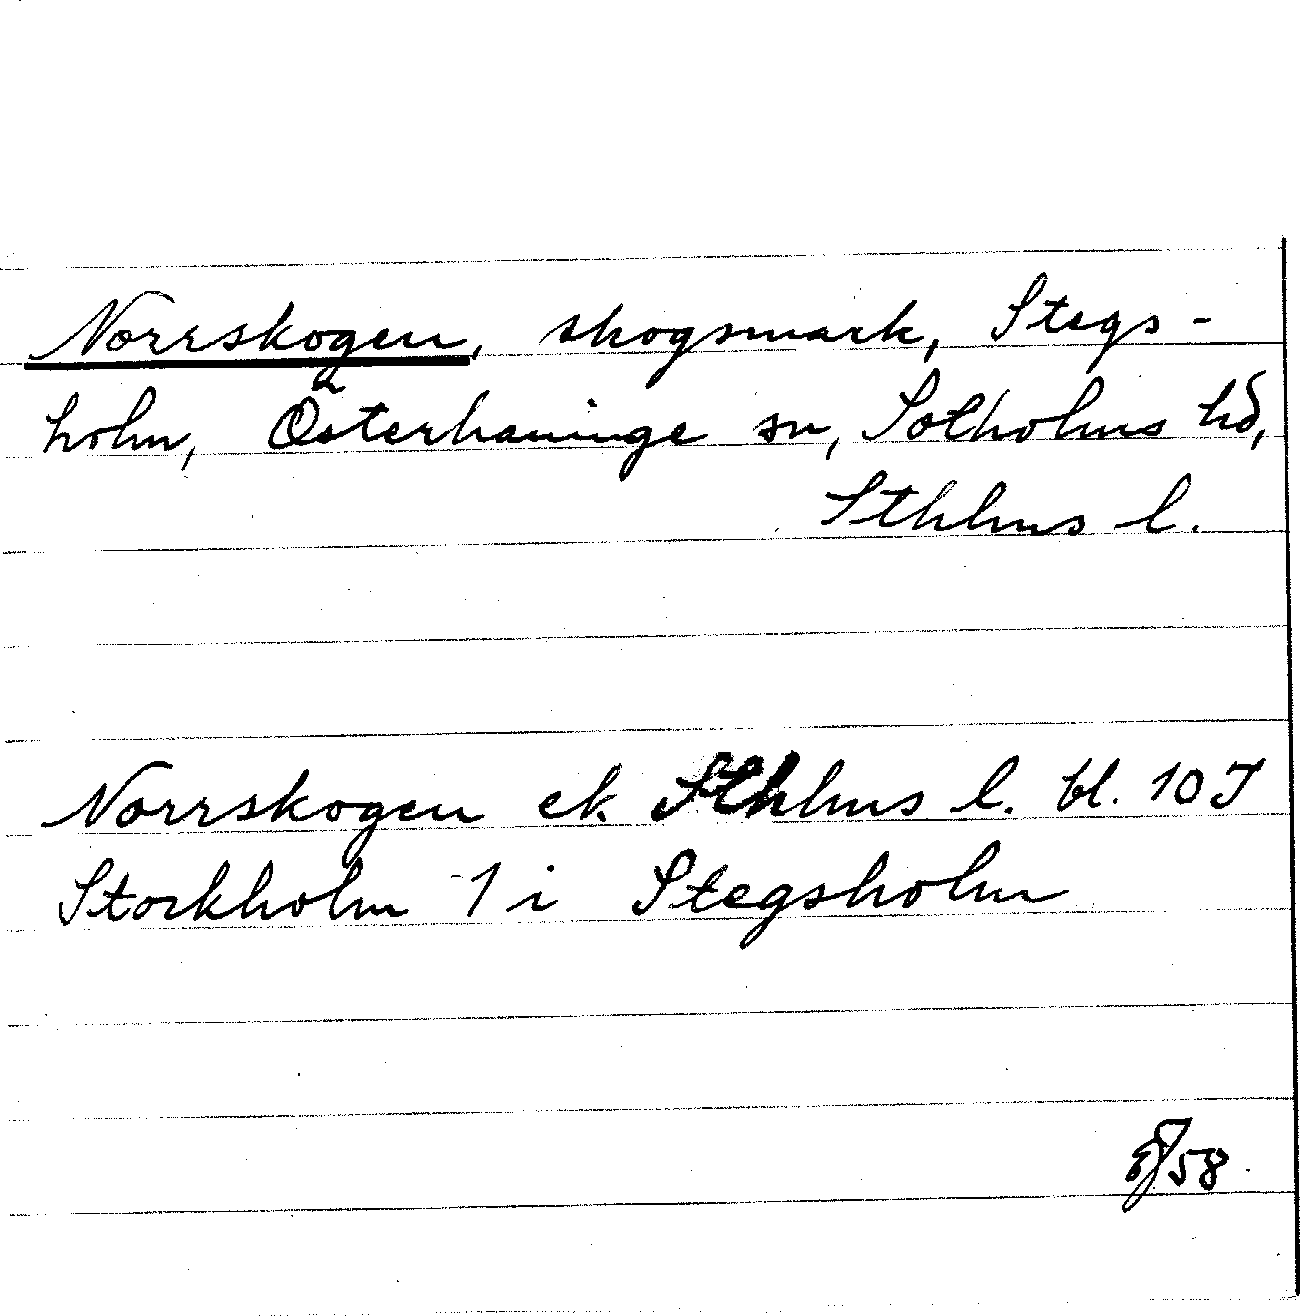 Norrskogen, skogsmark, Stegs-
holm, Österhaninge sn, Sotholms hd,
Sthlms l.
Norrskogen ek. Sthlms l. bl. 10 I
Stockholm 1 i Stegsholm
58